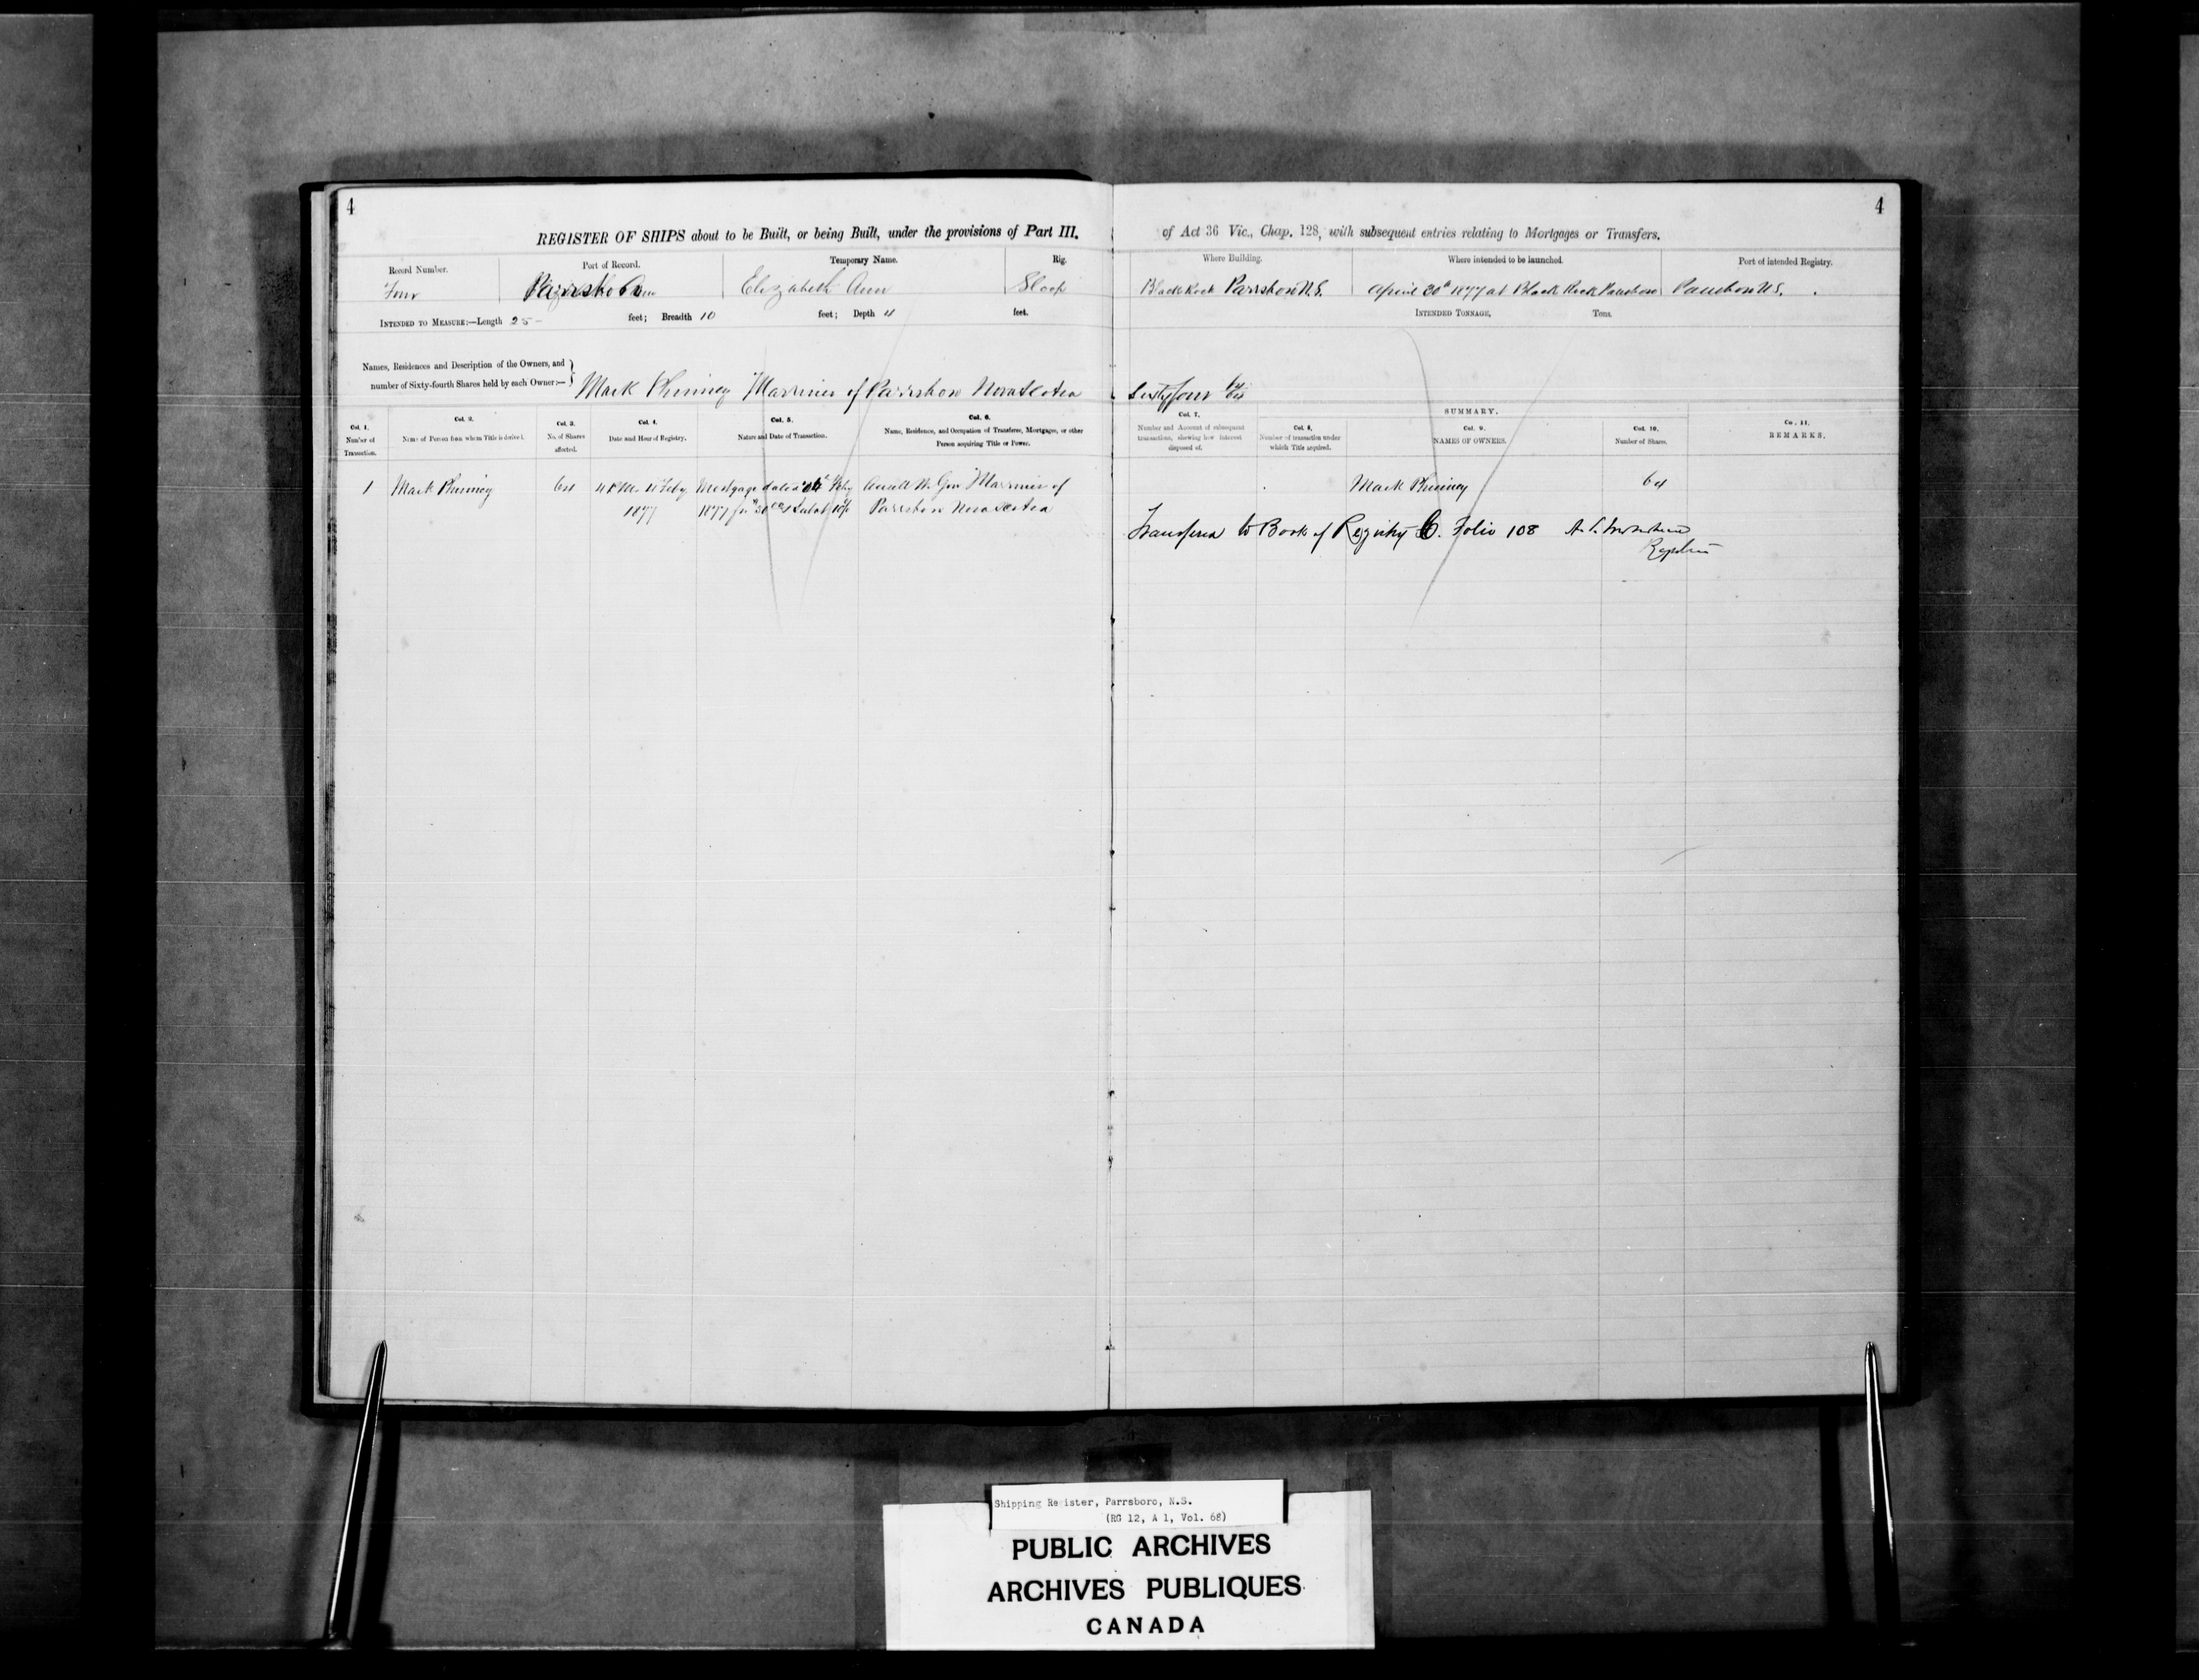 4
4
REGISTER OF SHIPS about to be Built, or being Built, under the provisions of Part III. of Act 36 Vic., Chap. 128, with subsequent entries relating to Mortgages or Transfers.
Record Number. Port of Record. Temporary Name. Rig. Where Building. Where intended to be launched. Port of intended Registry.
Four Parrsboro Elizabeth Ann Sloop Black Rock Parrsboro N.S. April 20th 1877 at Black Rock Parrsboro Parrsboro N.S.
INTENDED TO MEASURE:—Length 25 feet; Breadth 10 feet; Depth 4 feet. INTENDED TONNAGE, Tons.
Names, Residences and Description of the Owners, and
number of Sixty-fourth Shares held by each Owner:—
Mark Phinney Mariner of Parrsboro Nova Scotia Sixty four 64/64
SUMMARY.
Col. 1. Number of Transaction.
Col. 2. Name of Person from whom Title is derived.
Col. 3. No. of Shares affected.
Col. 4. Date and Hour of Registry.
Col. 5. Nature and Date of Transaction.
Col. 6. Name, Residence, and Occupation of Transferee, Mortgagee, or other Person acquiring Title or Power.
Col. 7. Number and Account of subsequent transactions, shewing how interest disposed of.
Col. 8. Number of transaction under which Title acquired.
Col. 9. NAMES OF OWNERS.
Col. 10. Number of Shares.
Col. 11. REMARKS.
1 Mark Phinney 64 4 P.M. 4 Feby Mortgage dated Feby Mariner of Mark Phinney 64
1877 1877 Parrsboro Nova Scotia
Transferred to Book of Registry C. Folio 108
Registrar
Shipping Register, Parrsboro, N.S.
(RG 12, A 1, Vol. 68)
PUBLIC ARCHIVES
ARCHIVES PUBLIQUES
CANADA